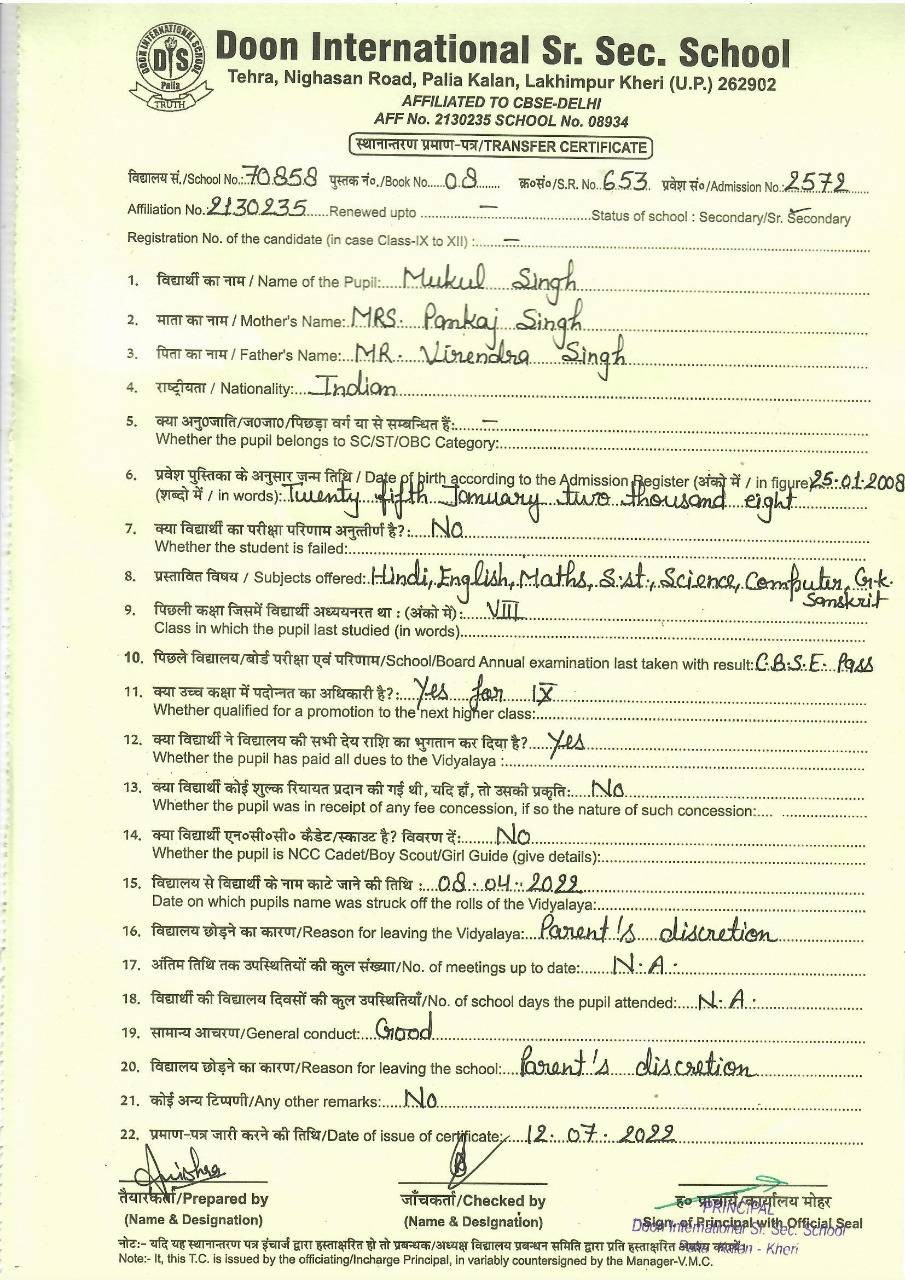 DOON INTERNATIONAL SCHOOL
DIS
Palia
TRUTH
Doon International Sr. Sec. School
Tehra, Nighasan Road, Palia Kalan, Lakhimpur Kheri (U.P.) 262902
AFFILIATED TO CBSE-DELHI
AFF No. 2130235 SCHOOL No. 08934
स्थानान्तरण प्रमाण-पत्र/TRANSFER CERTIFICATE
विद्यालय सं./School No.: 70858 पुस्तक नं./Book No. 08 क्र०सं०/S.R. No. 653. प्रवेश सं०/Admission No.: 2572
Affiliation No. 2130235 Renewed upto — Status of school : Secondary/Sr. Secondary
Registration No. of the candidate (in case Class-IX to XII) : —
1. विद्यार्थी का नाम / Name of the Pupil: Mukul Singh
2. माता का नाम / Mother's Name: MRS. Pankaj Singh
3. पिता का नाम / Father's Name: MR. Virendra Singh
4. राष्ट्रीयता / Nationality: Indian
5. क्या अनु०जाति/ज०जा०/पिछड़ा वर्ग या से सम्बन्धित हैं: —
Whether the pupil belongs to SC/ST/OBC Category:
6. प्रवेश पुस्तिका के अनुसार जन्म तिथि / Date of birth according to the Admission Register (अंको में / in figure) 25.01.2008
(शब्दो में / in words): Twenty fifth January two thousand eight
7. क्या विद्यार्थी का परीक्षा परिणाम अनुत्तीर्ण है?: No
Whether the student is failed:
8. प्रस्तावित विषय / Subjects offered: Hindi, English, Maths, S.st., Science, Computer, G.k.
Sanskrit
9. पिछली कक्षा जिसमें विद्यार्थी अध्ययनरत था : (अंको में): VIII
Class in which the pupil last studied (in words)
10. पिछले विद्यालय/बोर्ड परीक्षा एवं परिणाम/School/Board Annual examination last taken with result: C.B.S.E. Pass
11. क्या उच्च कक्षा में पदोन्नत का अधिकारी है?: Yes for IX
Whether qualified for a promotion to the next higher class:
12. क्या विद्यार्थी ने विद्यालय की सभी देय राशि का भुगतान कर दिया है? Yes
Whether the pupil has paid all dues to the Vidyalaya :
13. क्या विद्यार्थी कोई शुल्क रियायत प्रदान की गई थी, यदि हाँ, तो उसकी प्रकृति: No
Whether the pupil was in receipt of any fee concession, if so the nature of such concession:
14. क्या विद्यार्थी एन०सी०सी० कैडेट/स्काउट है? विवरण दें: No
Whether the pupil is NCC Cadet/Boy Scout/Girl Guide (give details):
15. विद्यालय से विद्यार्थी के नाम काटे जाने की तिथि : 08.04.2022
Date on which pupils name was struck off the rolls of the Vidyalaya:
16. विद्यालय छोड़ने का कारण/Reason for leaving the Vidyalaya: Parent's discretion
17. अंतिम तिथि तक उपस्थितियों की कुल संख्या/No. of meetings up to date: N.A.
18. विद्यार्थी की विद्यालय दिवसों की कुल उपस्थितियाँ/No. of school days the pupil attended: N.A.
19. सामान्य आचरण/General conduct: Good
20. विद्यालय छोड़ने का कारण/Reason for leaving the school: Parent's discretion
21. कोई अन्य टिप्पणी/Any other remarks: No
22. प्रमाण-पत्र जारी करने की तिथि/Date of issue of certificate: 12.07.2022
तैयारकर्ता/Prepared by जाँचकर्ता/Checked by ह० प्राचार्य/कार्यालय मोहर
PRINCIPAL
(Name & Designation) (Name & Designation) Sign. of Principal with Official Seal
Doon International Sr. Sec. School
नोट:- यदि यह स्थानान्तरण पत्र इंचार्ज द्वारा हस्ताक्षरित हो तो प्रबन्धक/अध्यक्ष विद्यालय प्रबन्धन समिति द्वारा प्रति हस्ताक्षरित
Kheri
Note:- It, this T.C. is issued by the officiating/Incharge Principal, in variably countersigned by the Manager-V.M.C.